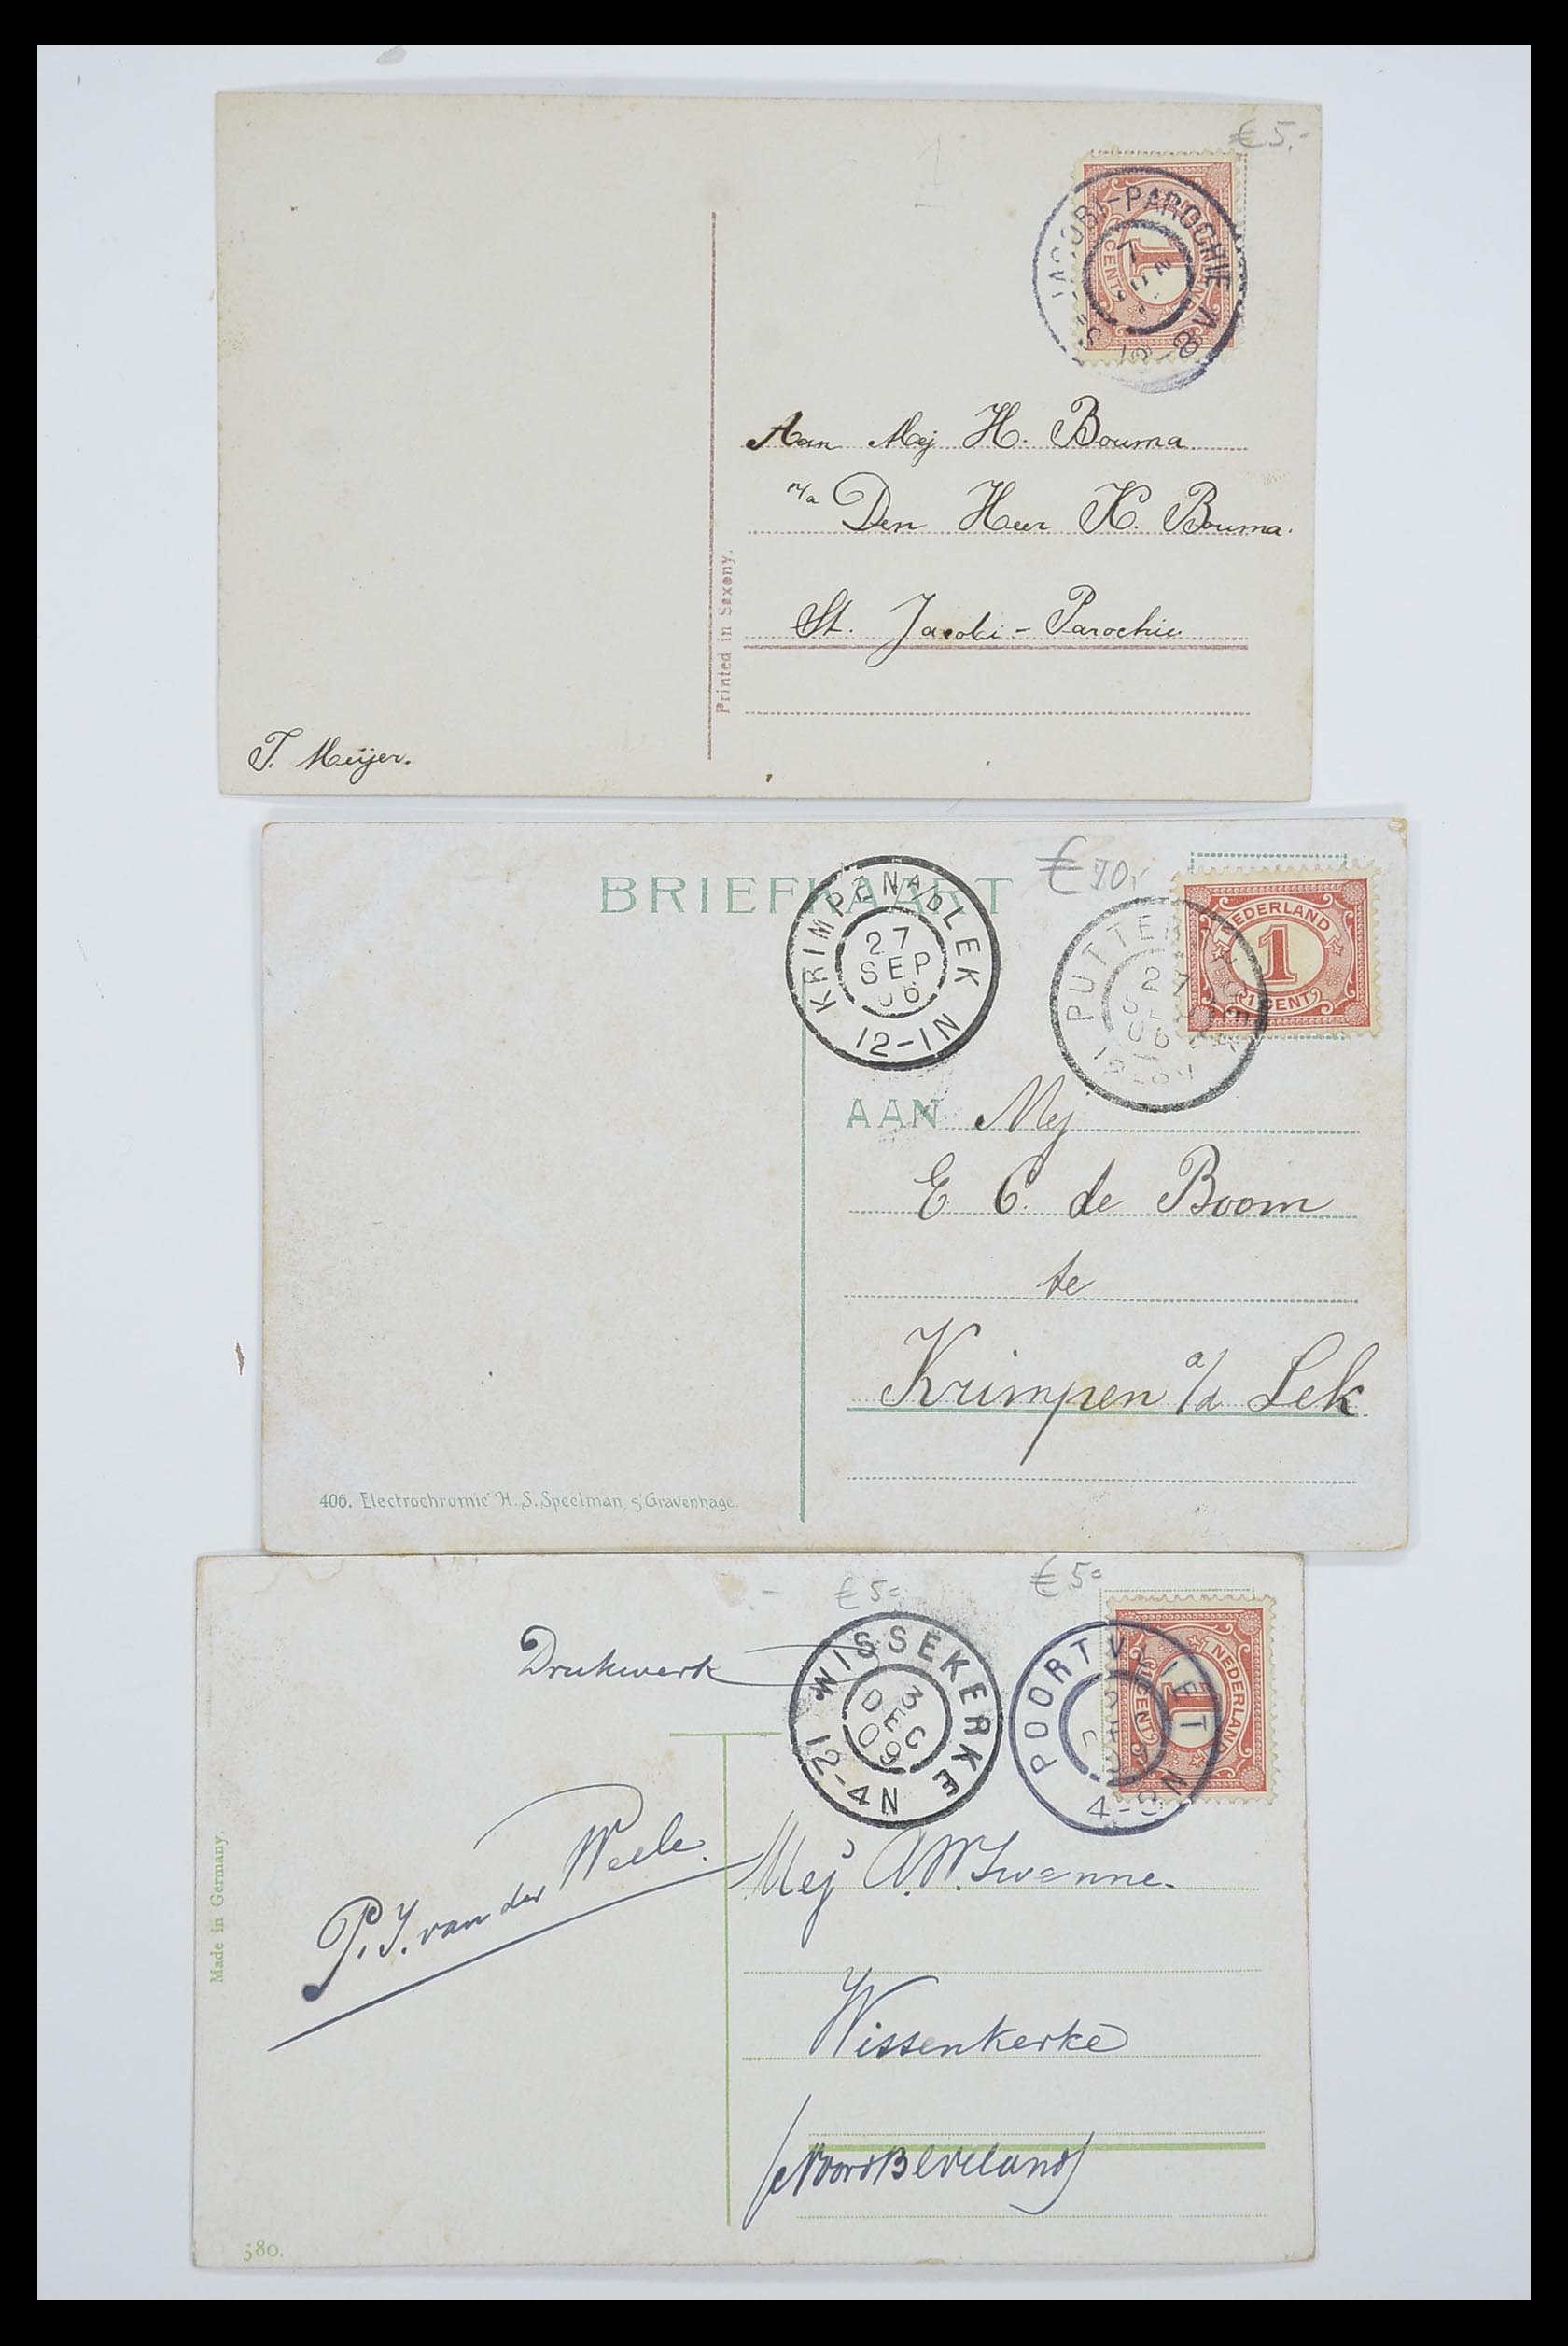 € 5,-
JACOBI-PAROCHIE
7
1 CENT
Aan Mej H. Bouma
p/a Den Heer K. Bouma.
St. Jacobi-Parochie
Printed in Saxony.
T. Meijer.
BRIEFKAART
€ 10,-
KRIMPEN A/D LEK
27
SEP
06
12-1N
PUTTE
06
NEDERLAND
1
1 CENT
AAN Mej
E C. de Boom
te
Krimpen a/d Lek
406. Electrochromie H. S. Speelman, s'Gravenhage.
€ 5=
€ 5=
Drukwerk
WISSEKERKE
3
DEC
09
12-4N
POORTVLIET
4-8N
NEDERLAND
1
CENT
P. J. van der Weele.
Mej A. W. Swenne.
Wissenkerke
(Noord Beveland)
Made in Germany.
580.